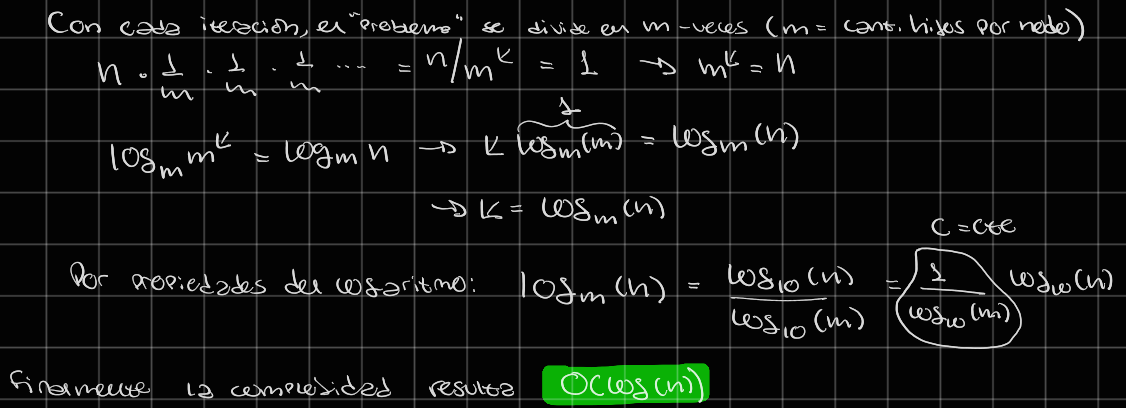 Con cada iteración, el "Problema" se divide en m-veces (m = cant. hijos por nodo)
n · 1/m · 1/m · 1/m ... = n/m^k = 1 → m^k = n
1
log_m m^k = log_m n → k log_m(m) = log_m(n)
→ k = log_m(n)
C = cte
Por propiedades del logaritmo: log_m(n) = log_10(n) / log_10(m) = 1 / log_10(m) log_10(n)
Finalmente la complejidad resulta O(log(n))